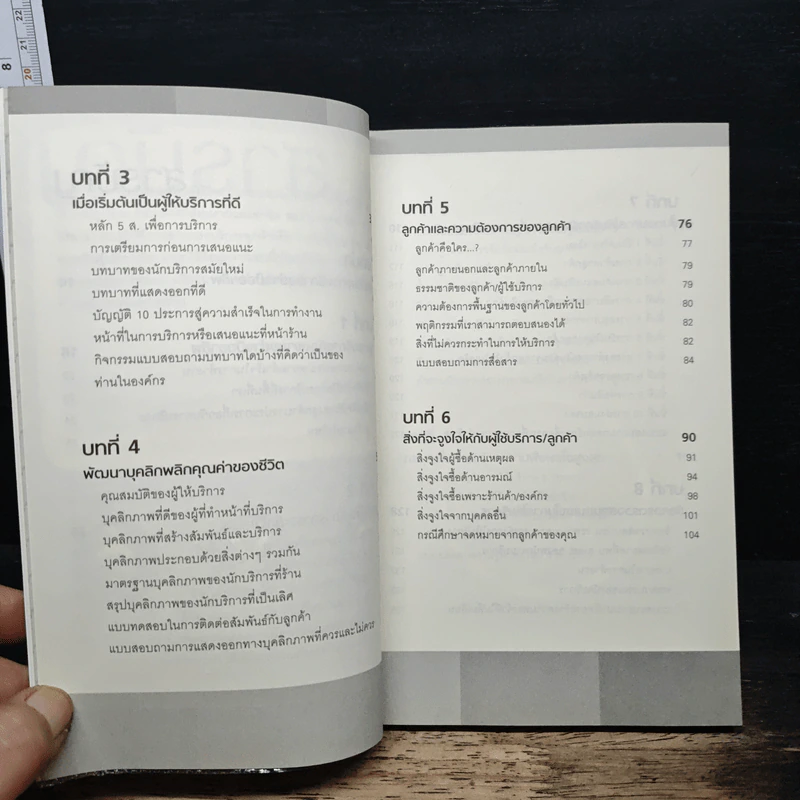 บทที่ 3
เมื่อเริ่มต้นเป็นผู้ให้บริการที่ดี
หลัก 5 ส. เพื่อการบริการ
การเตรียมการก่อนการเสนอแนะ
บทบาทของนักบริการสมัยใหม่
บทบาทที่แสดงออกที่ดี
บัญญัติ 10 ประการสู่ความสำเร็จในการทำงาน
หน้าที่ในการบริการหรือเสนอแนะที่หน้าร้าน
กิจกรรมแบบสอบถามบทบาทใดบ้างที่คิดว่าเป็นของ
ท่านในองค์กร
บทที่ 4
พัฒนาบุคลิกพลิกคุณค่าของชีวิต
คุณสมบัติของผู้ให้บริการ
บุคลิกภาพที่ดีของผู้ที่ทำหน้าที่บริการ
บุคลิกภาพที่สร้างสัมพันธ์และบริการ
บุคลิกภาพประกอบด้วยสิ่งต่างๆ รวมกัน
มาตรฐานบุคลิกภาพของนักบริการที่ร้าน
สรุปบุคลิกภาพของนักบริการที่เป็นเลิศ
แบบทดสอบในการติดต่อสัมพันธ์กับลูกค้า
แบบสอบถามการแสดงออกทางบุคลิกภาพที่ควรและไม่ควร
บทที่ 5
ลูกค้าและความต้องการของลูกค้า 76
ลูกค้าคือใคร...? 77
ลูกค้าภายนอกและลูกค้าภายใน 79
ธรรมชาติของลูกค้า/ผู้ใช้บริการ 79
ความต้องการพื้นฐานของลูกค้าโดยทั่วไป 80
พฤติกรรมที่เราสามารถตอบสนองได้ 82
สิ่งที่ไม่ควรกระทำในการให้บริการ 82
แบบสอบถามการสื่อสาร 84
บทที่ 6
สิ่งที่จะจูงใจให้กับผู้ใช้บริการ/ลูกค้า 90
สิ่งจูงใจผู้ซื้อด้านเหตุผล 91
สิ่งจูงใจซื้อด้านอารมณ์ 94
สิ่งจูงใจซื้อเพราะร้านค้า/องค์กร 98
สิ่งจูงใจจากบุคคลอื่น 101
กรณีศึกษาจดหมายจากลูกค้าของคุณ 104